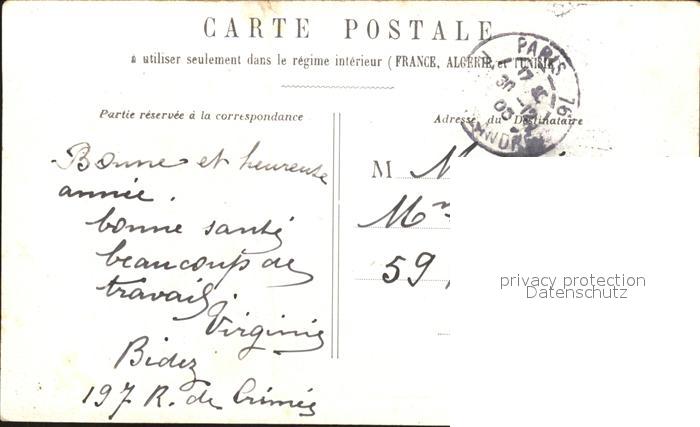 CARTE POSTALE
à utiliser seulement dans le régime intérieur (FRANCE, ALGÉRIE et TUNISIE
PARIS 76
Partie réservée à la correspondance
Adresse du Destinataire
Bonne et heureuse
année.
bonne santé
beaucoup de
travail.
Virginie
Bidez
197 R. de Crimée
M
Mr
59
privacy protection
Datenschutz